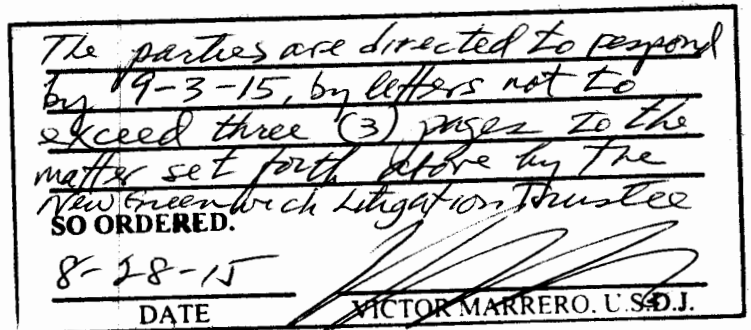 The parties are directed to respond
by 9-3-15, by letters not to
exceed three (3) pages to the
matter set forth above by the
New Greenwich Litigation Trustee
SO ORDERED.
8-28-15
DATE
VICTOR MARRERO. U.S.D.J.